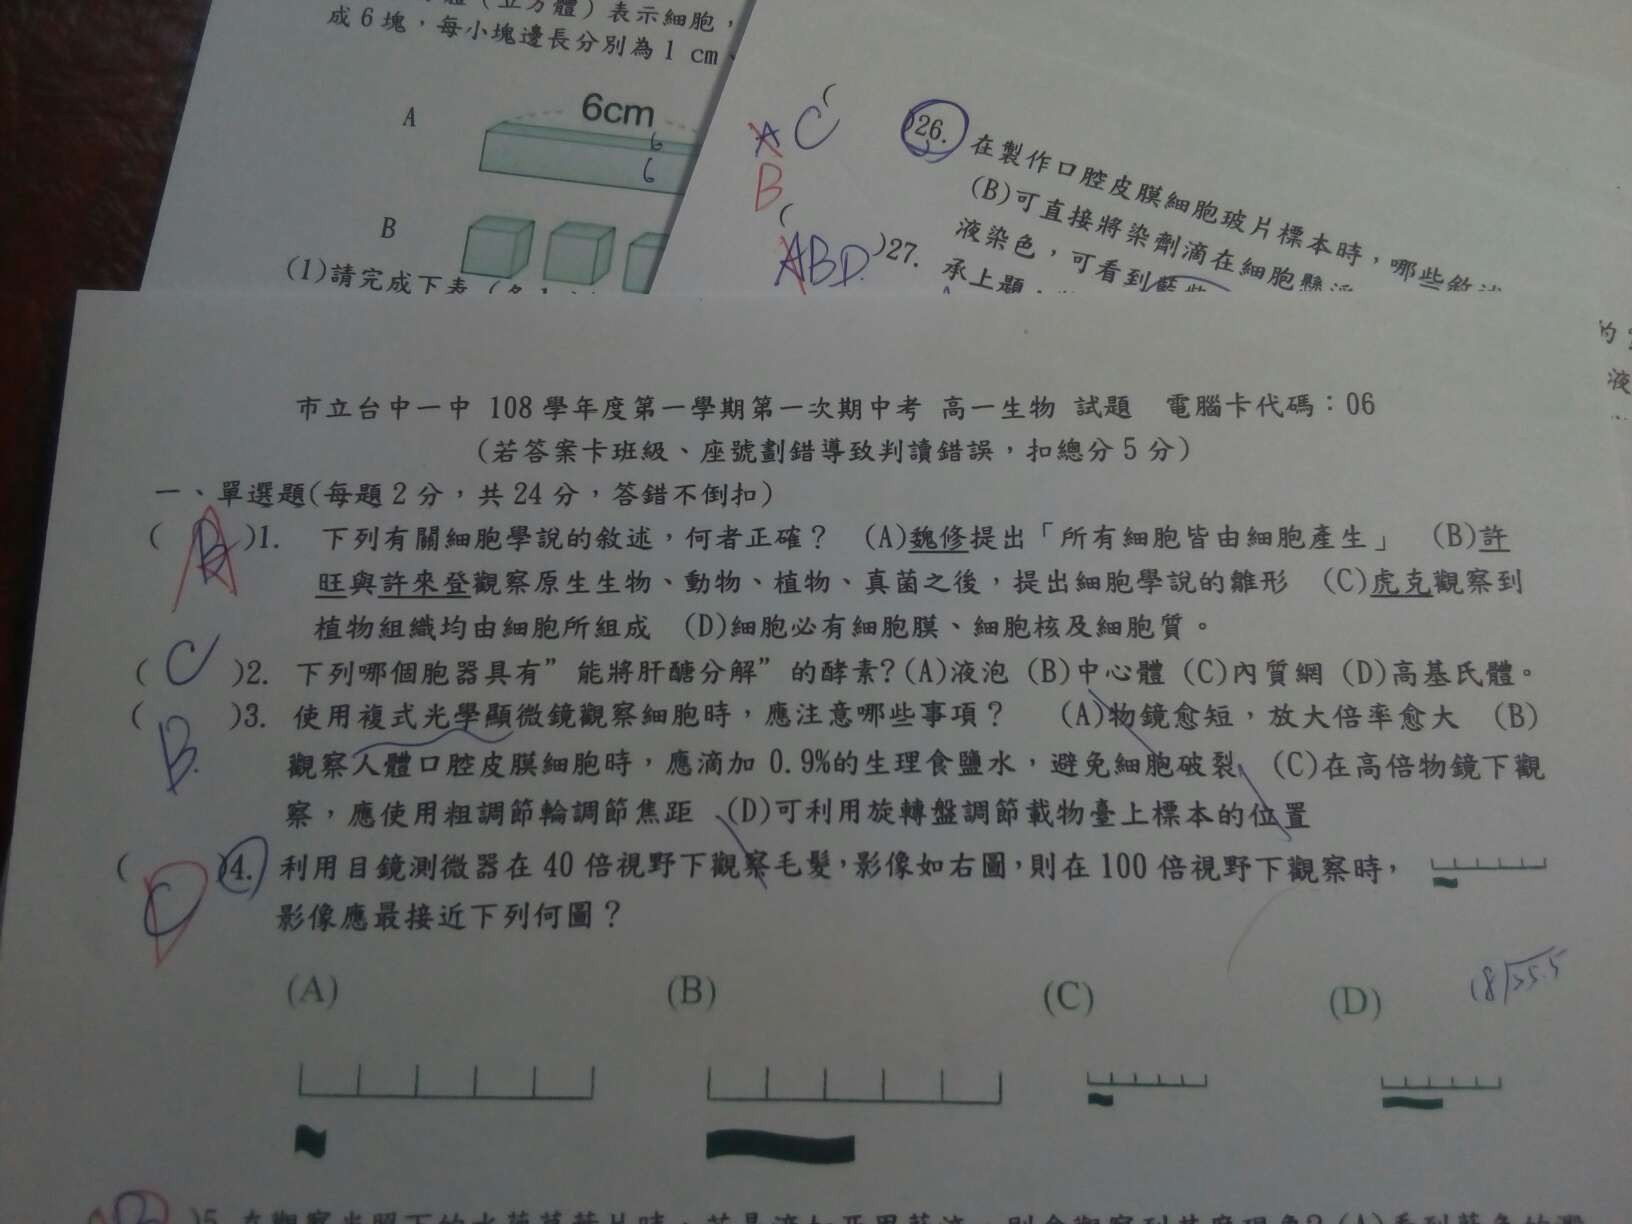 表示細胞，
成6塊，每小塊邊長分別為1 cm、
A
6cm
6
6
B
(1)請完成下表
A C
B
(
)26. 在製作口腔皮膜細胞玻片標本時，哪些敘述
(B)可直接將染劑滴在細胞懸
液染色，可看到藍紫
(
ABD. )27. 承上題，
市立台中一中 108學年度第一學期第一次期中考 高一生物 試題 電腦卡代碼：06
(若答案卡班級、座號劃錯導致判讀錯誤，扣總分5分)
一、單選題(每題2分，共24分，答錯不倒扣)
( B A )1. 下列有關細胞學說的敘述，何者正確？ (A)魏修提出「所有細胞皆由細胞產生」 (B)許
旺與許來登觀察原生生物、動物、植物、真菌之後，提出細胞學說的雛形 (C)虎克觀察到
植物組織均由細胞所組成 (D)細胞必有細胞膜、細胞核及細胞質。
( C )2. 下列哪個胞器具有”能將肝醣分解”的酵素?(A)液泡 (B)中心體 (C)內質網 (D)高基氏體。
( B. )3. 使用複式光學顯微鏡觀察細胞時，應注意哪些事項？ (A)物鏡愈短，放大倍率愈大 (B)
觀察人體口腔皮膜細胞時，應滴加 0.9%的生理食鹽水，避免細胞破裂 (C)在高倍物鏡下觀
察，應使用粗調節輪調節焦距 (D)可利用旋轉盤調節載物臺上標本的位置
( C D )4. 利用目鏡測微器在40倍視野下觀察毛髮，影像如右圖，則在100倍視野下觀察時，
影像應最接近下列何圖？
(A) (B) (C) (D)